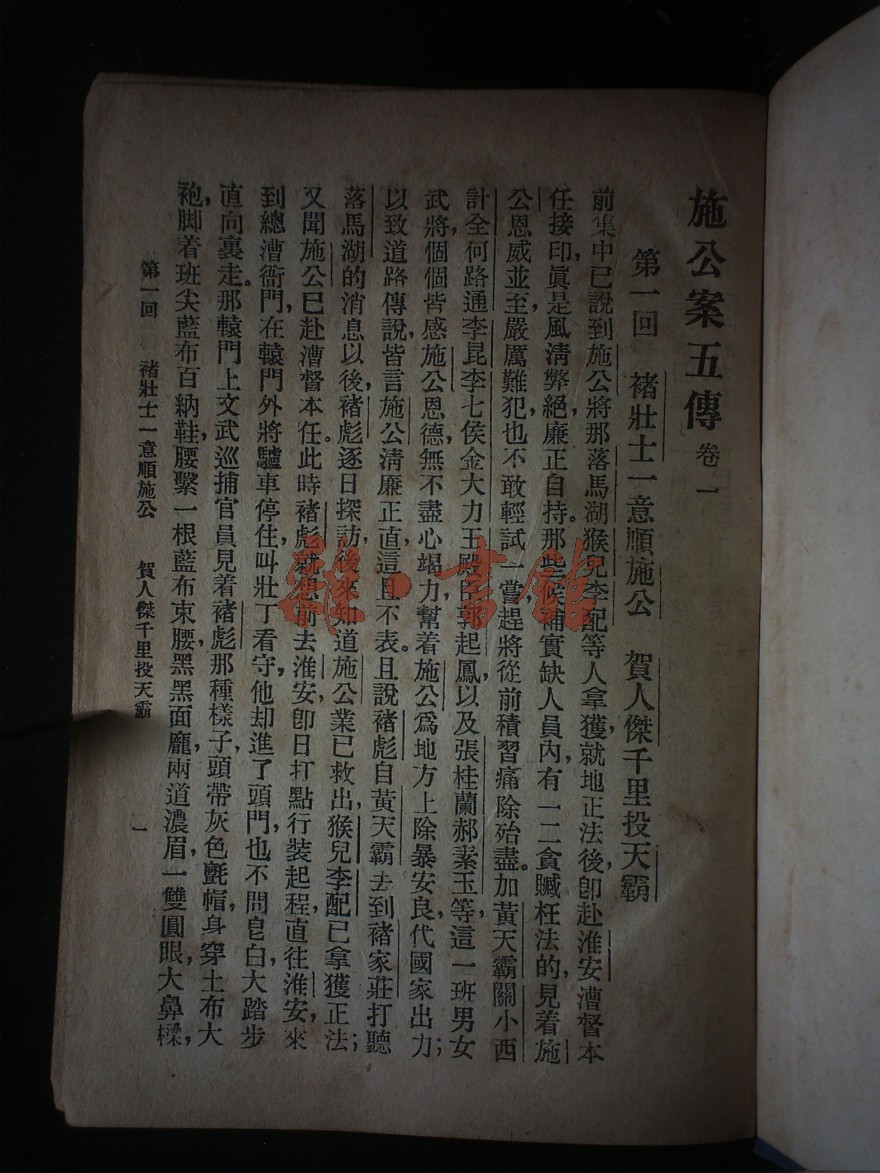 施公案五傳 卷一
第一回 褚壯士一意順施公 賀人傑千里投天霸
前集中已說到施公將那落馬湖猴兒李配等人拿獲，就地正法後，卽赴淮安漕督本
任接印，眞是風淸弊絕，廉正自持。那些候補實缺人員內，有一二貪贓枉法的，見着施
公恩威並至，嚴厲難犯，也不敢輕試一嘗，趕將從前積習痛除殆盡。加黃天霸關小西
計全何路通李昆李七侯金大力王殿臣郭起鳳，以及張桂蘭郝素玉等，這一班男女
武將，個個皆感施公恩德，無不盡心竭力，幫着施公爲地方上除暴安良，代國家出力；
以致道路傳說，皆言施公淸廉正直，這且不表。且說褚彪自黃天霸去到褚家莊打聽
落馬湖的消息以後，褚彪逐日探訪，後來知道施公業已救出，猴兒李配已拿獲正法；
又聞施公已赴漕督本任。此時褚彪就想前去淮安，卽日打點行裝起程，直往淮安，來
到總漕衙門，在轅門外將驢車停住，叫壯丁看守，他却進了頭門，也不問皂白，大踏步
直向裏走。那轅門上文武巡捕官員見着褚彪那種樣子，頭帶灰色氈帽，身穿土布大
袍，脚着班尖藍布百納鞋，腰繫一根藍布束腰，黑黑面龐，兩道濃眉，一雙圓眼，大鼻樑，
第一回 褚壯士一意順施公 賀人傑千里投天霸 一
雜·書館